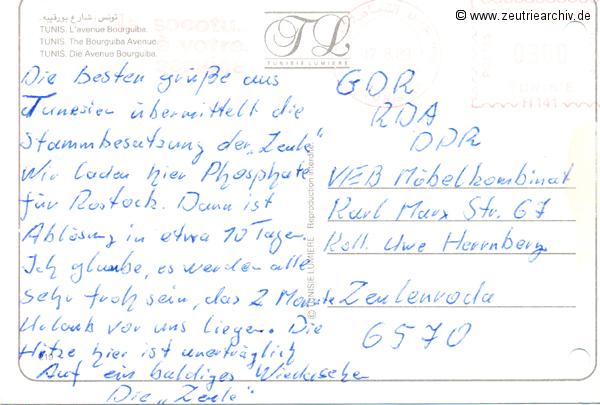 © www.zeutriearchiv.de
تونس : شارع بورقيبة
TUNIS. L'avenue Bourguiba.
TUNIS. The Bourguiba Avenue.
TUNIS. Die Avenue Bourguiba.
TL
TUNISIE LUMIERE
0300
TUNISIE
H 141
Die besten grüße aus
Tunesien übermittelt die
Stammbesatzung der „Zeule"
Wir laden hier Phosphate
für Rostock. Dann ist
Ablösung in etwa 10 Tagen.
Ich glaube, es werden alle
sehr froh sein, das 2 Monate
Urlaub vor uns liegen. Die
Hitze hier ist unerträglich
Auf ein baldiges Wiedersehen
Die „Zeule"
© TUNISIE LUMIERE Reproduction interdite
GDR
RDA
DDR
VEB Möbelkombinat
Karl Marx Str. 67
Koll. Uwe Herrnberg
Zeulenroda
6570